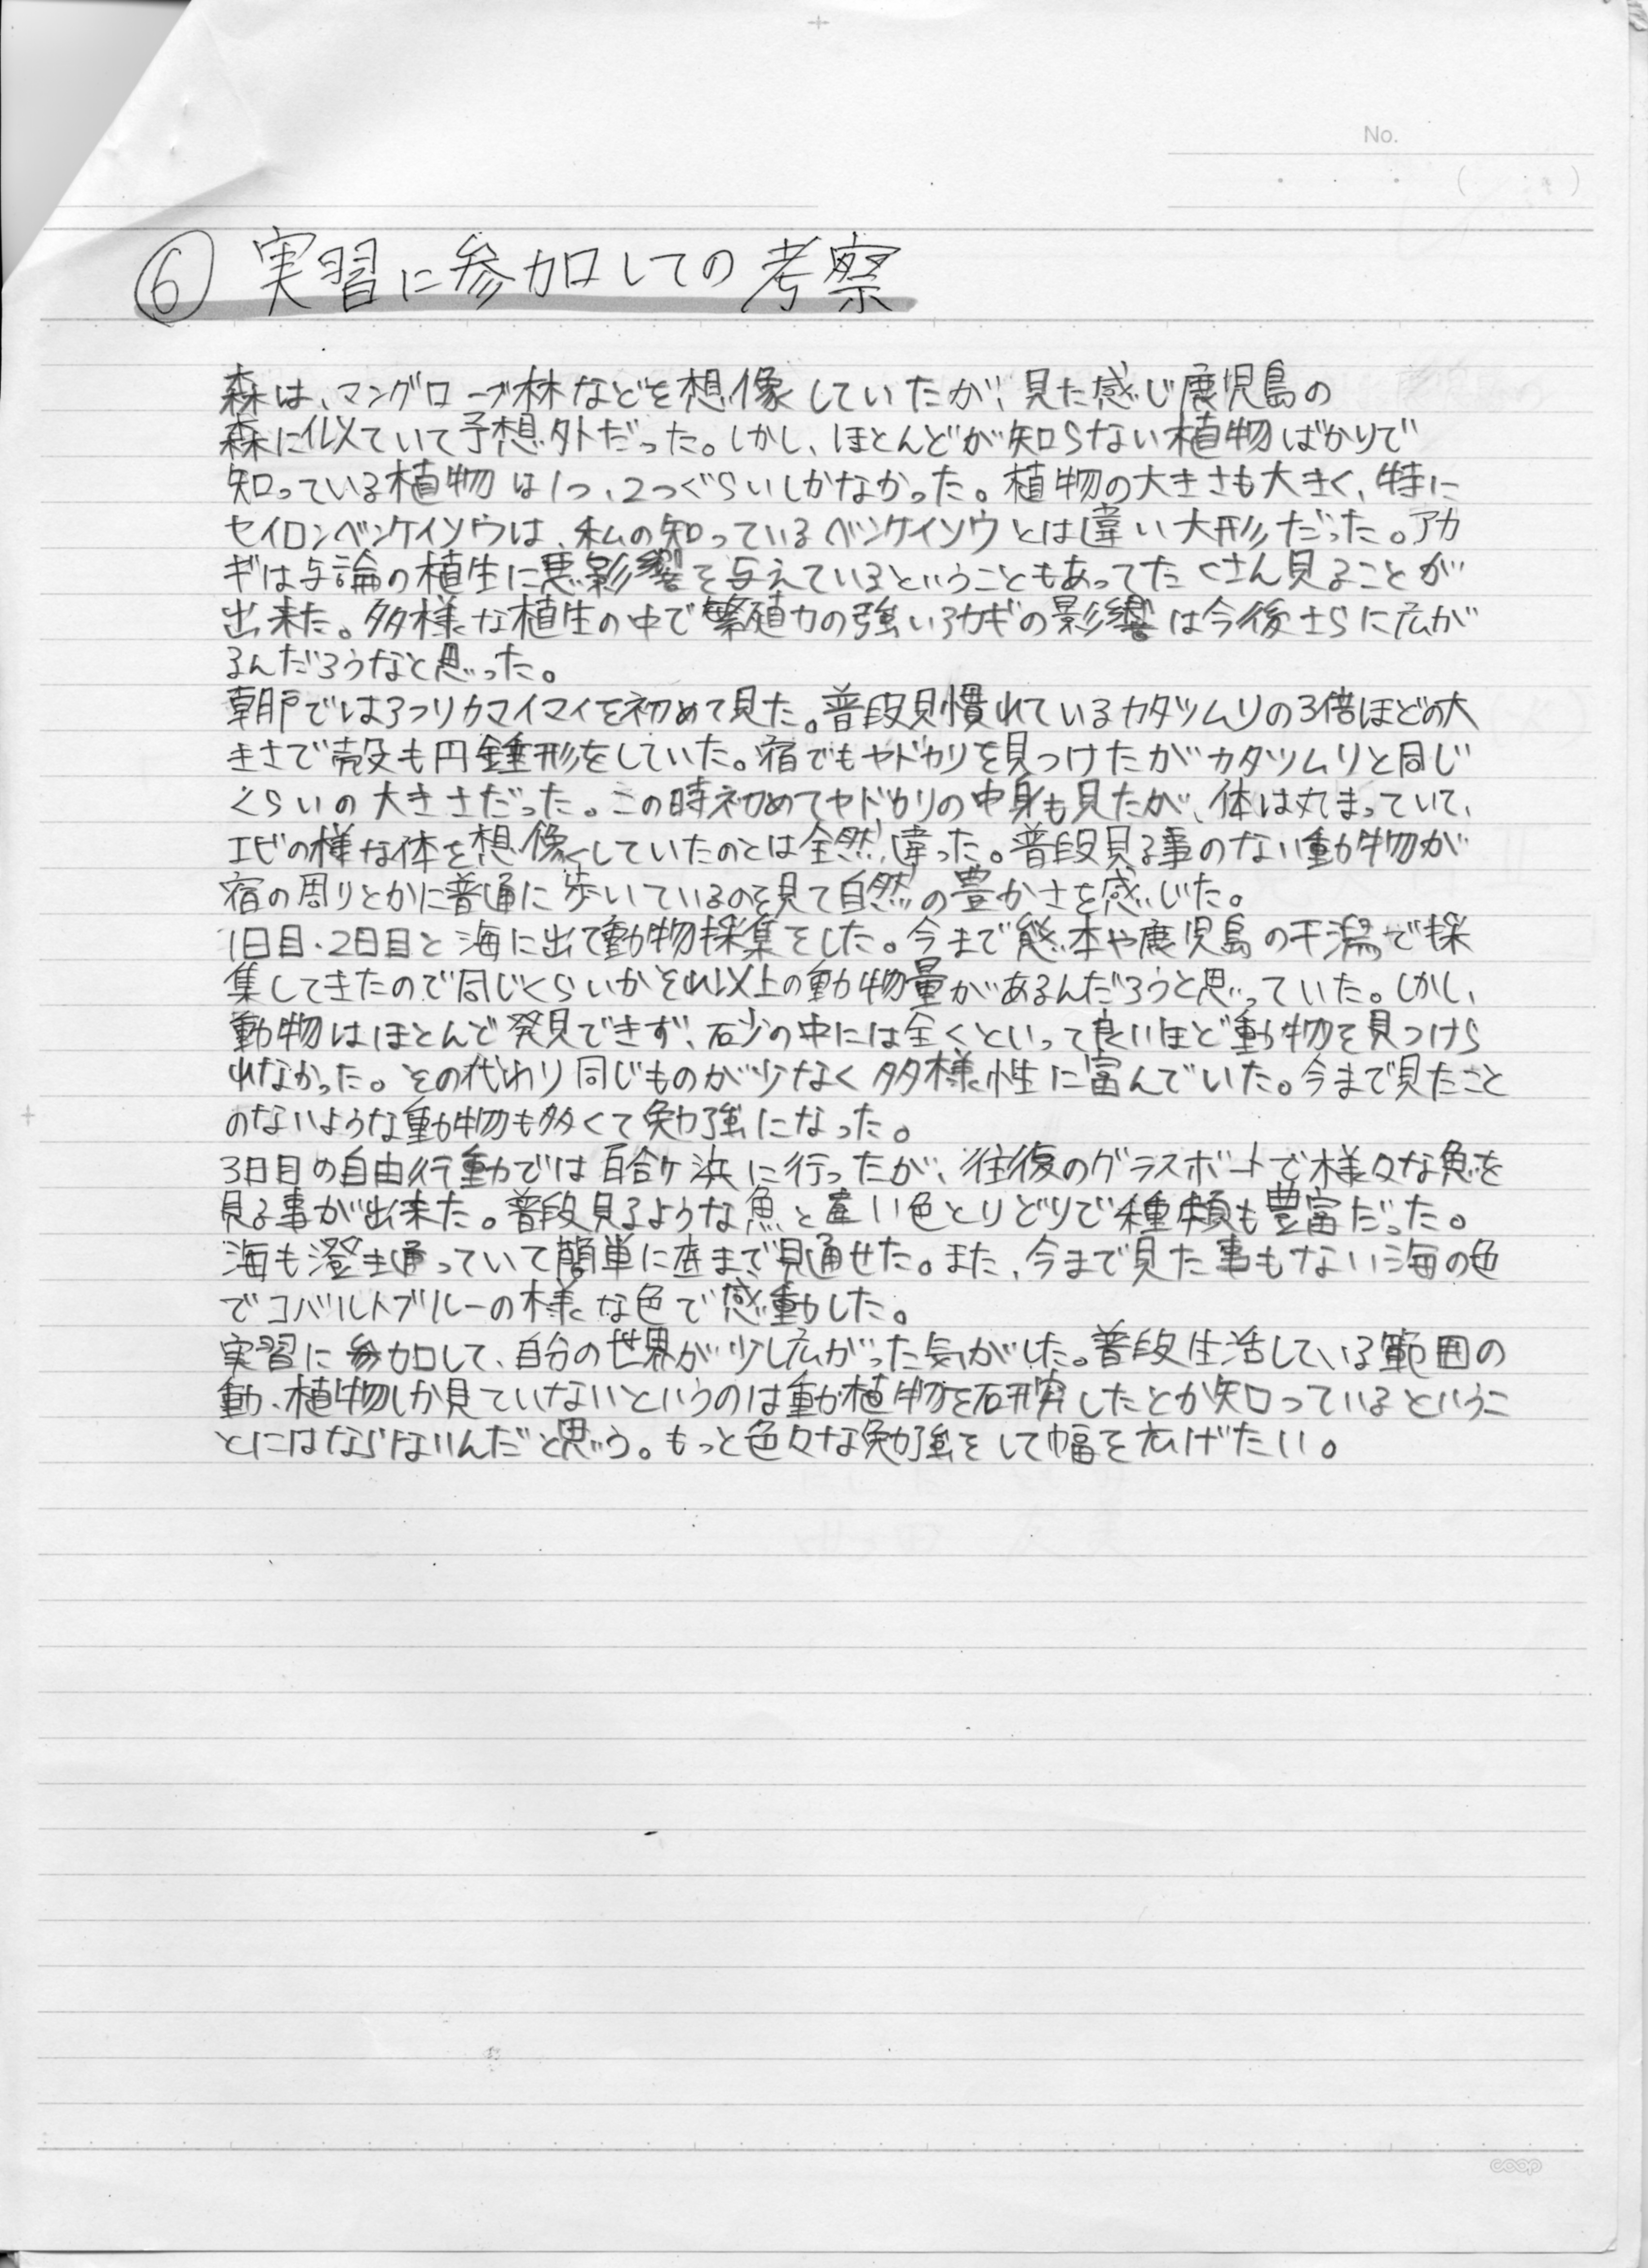 No.
⑥ 実習に参加しての考察
森は、マングローブ林などを想像していたが、見た感じ鹿児島の
森に似ていて予想外だった。しかし、ほとんどが知らない植物ばかりで
知っている植物は1つ、2つぐらいしかなかった。植物の大きさも大きく、特に
セイロンベンケイソウは、私の知っているベンケイソウとは違い大形だった。アカ
ギは与論の植生に悪影響を与えているということもあってたくさん見ることが
出来た。多様な植生の中で繁殖力の強いアカギの影響は今後さらに広が
るんだろうなと思った。
朝戸ではアフリカマイマイを初めて見た。普段見慣れているカタツムリの3倍ほどの大
きさで殻も円錐形をしていた。宿でもヤドカリを見つけたがカタツムリと同じ
くらいの大きさだった。この時初めてヤドカリの中身も見たが、体は丸まっていて、
エビの様な体を想像していたのとは全然違った。普段見る事のない動物が
宿の周りとかに普通に歩いているのを見て自然の豊かさを感じた。
1日目・2日目と海に出て動物採集をした。今まで熊本や鹿児島の干潟で採
集してきたので同じくらいかそれ以上の動物量があるんだろうと思っていた。しかし、
動物はほとんど発見できず、砂の中には全くといって良いほど動物を見つけら
れなかった。その代わり同じものが少なく多様性に富んでいた。今まで見たこと
のないような動物も多くて勉強になった。
3日目の自由行動では百合ヶ浜に行ったが、往復のグラスボートで様々な魚を
見る事が出来た。普段見るような魚と違い色とりどりで種類も豊富だった。
海も澄き通っていて簡単に底まで見通せた。また、今まで見た事もない海の色
でコバルトブルーの様な色で感動した。
実習に参加して、自分の世界が少し広がった気がした。普段生活している範囲の
動、植物しか見ていないというのは動植物を研究したとか知っているというこ
とにはならないんだと思う。もっと色々な勉強をして幅を広げたい。
coop